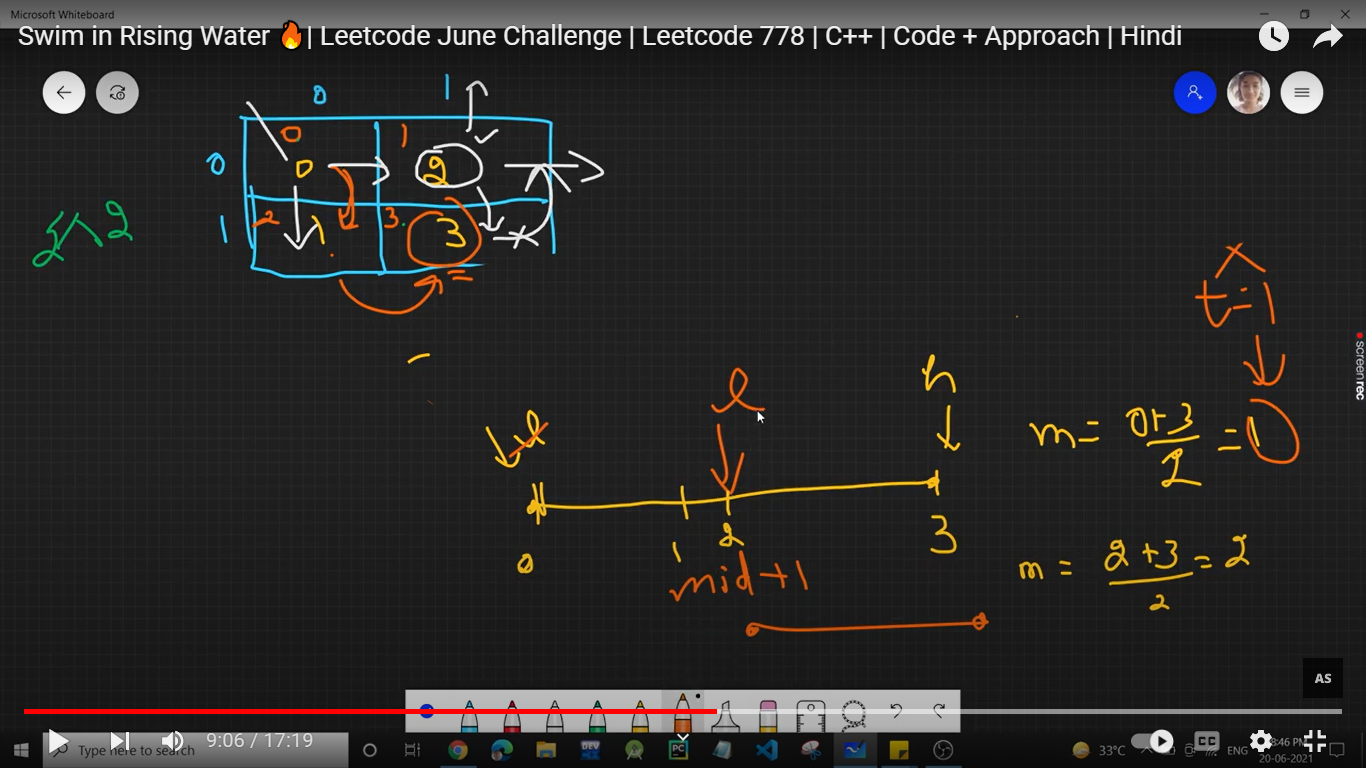 Microsoft Whiteboard
Swim in Rising Water 🔥| Leetcode June Challenge | Leetcode 778 | C++ | Code + Approach | Hindi
0 1
0 0 1
0 2
1 2 1 3 3
2
t=1
l l h
m = 0+3 = 1
2
0 1 2 3
mid+1
m = 2+3 = 2
2
screenrec
AS
9:06 / 17:19
Type here to search
DEV
PC
33°C
CC
ENG
8:46 PM
20-06-2021